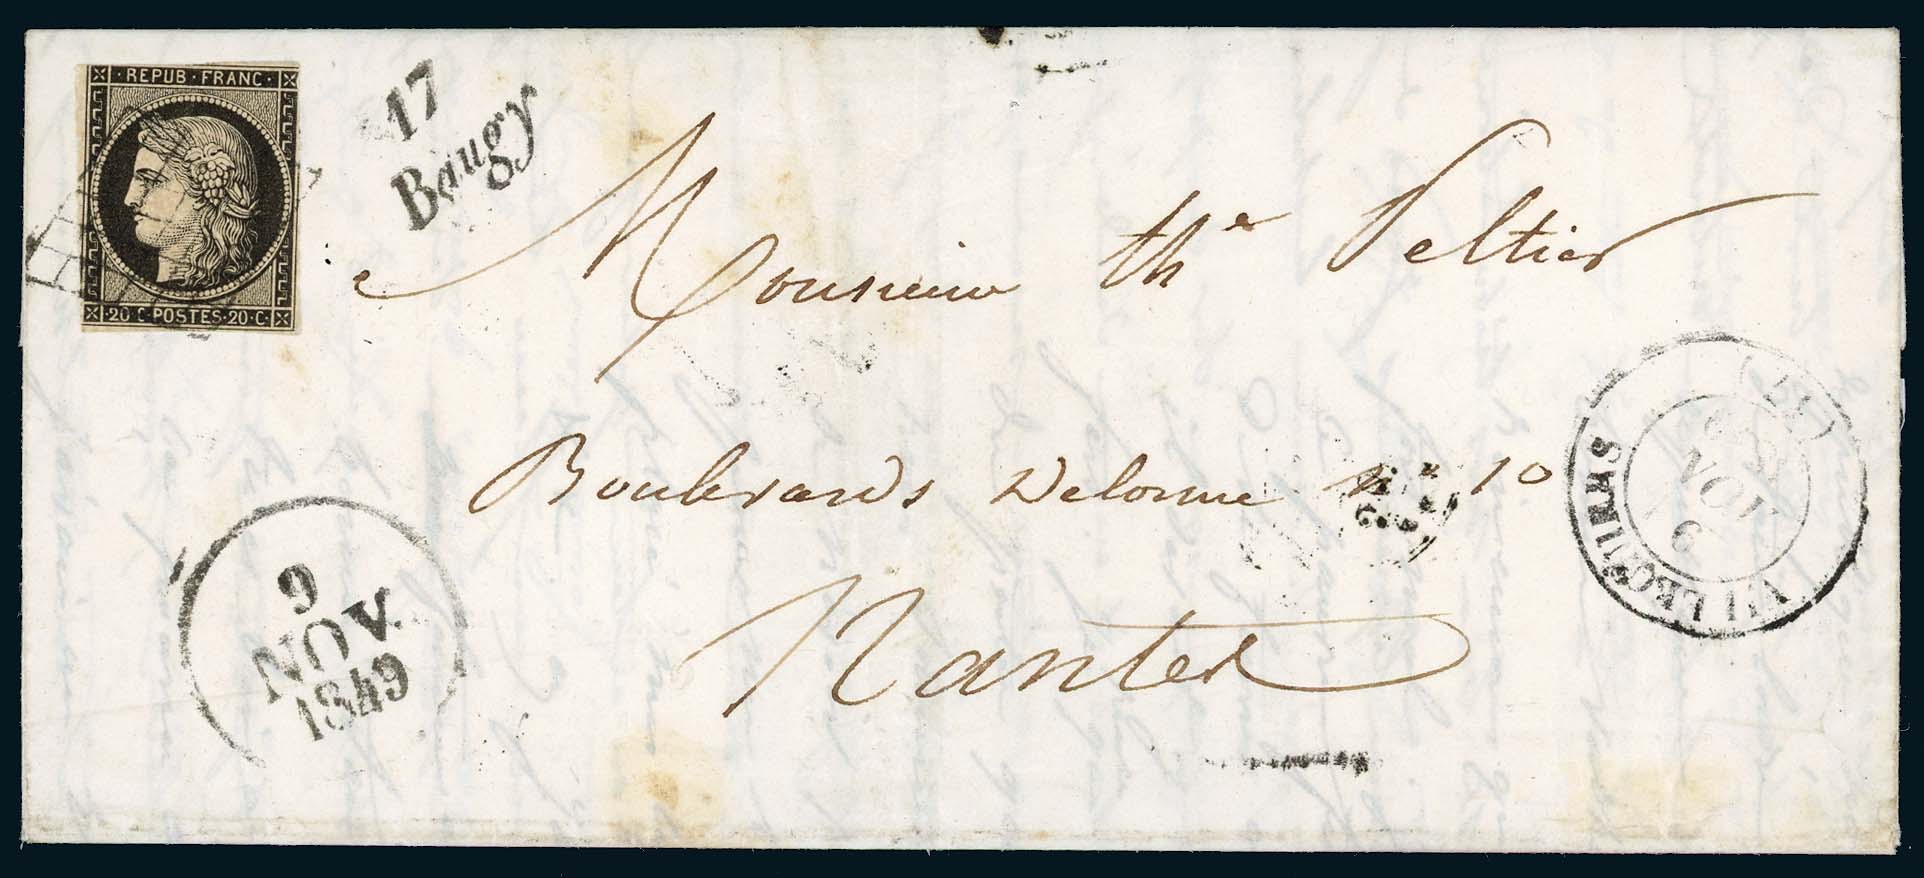 REPUB · FRANC ·
20 · C · POSTES · 20 · C ·
17
Baugy
Monsieur th Peltier
Boulevards Delorme n° 10
Nantes
9
NOV.
1849
VILLEQUIERS
(17)
NOV